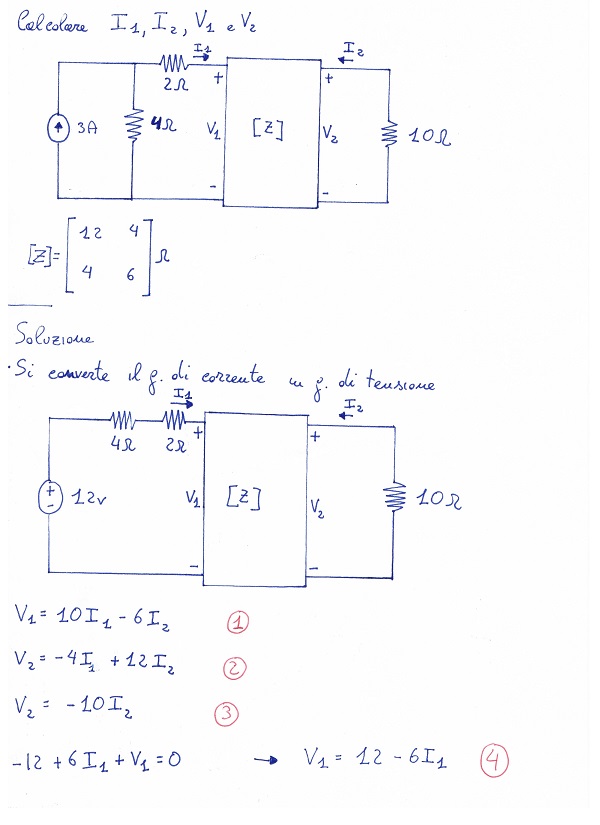 Calcolare I1, I2, V1 e V2
I1
I2
2Ω
+
+
3A
4Ω
V1
[Z]
V2
10Ω
-
-
[Z]= [12 4
4 6] Ω
Soluzione
· Si converte il g. di corrente in g. di tensione
I1
I2
4Ω
2Ω
+
+
+
-
12v
V1
[Z]
V2
10Ω
-
-
V1 = 10I1 - 6I2 ①
V2 = -4I1 + 12I2 ②
V2 = -10I2 ③
-12 + 6I1 + V1 = 0 → V1 = 12 - 6I1 ④